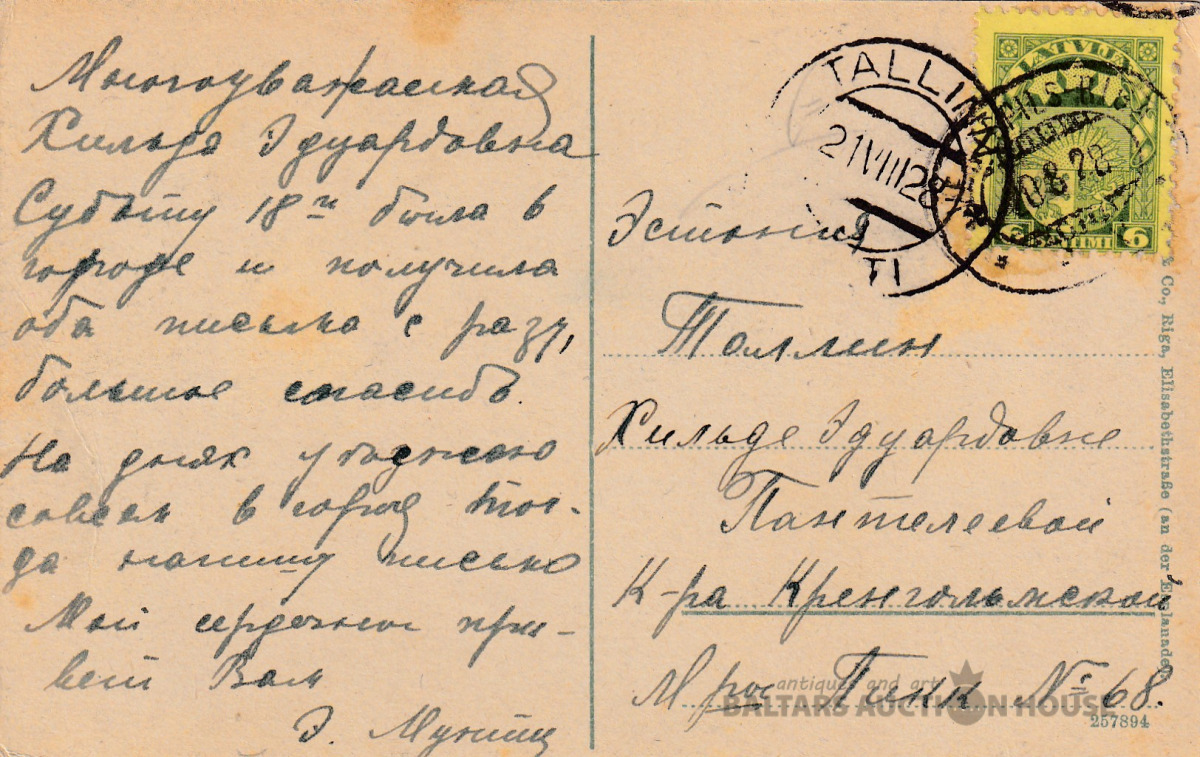 Многоуважаемая
Хильда Эдуардовна
Субботу 18го была в
городе и получила
оба письма с разу,
большое спасибо.
На днях уезжаю
совсем в город тог-
да напишу письмо
Мой сердечный при-
вет Вам
Э.
TALLINN
21 VIII 28
EESTI
LATVIJA
6 SANTIMI 6
Эстония
Таллин
Хильде Эдуардовне
Пантелеевой
К-ра Кренгольмской
М
Пикк № 68.
& Co., Riga, Elisabethstraße (an der Esplanade)
257894
antiques and art
BALTARS AUCTION HOUSE